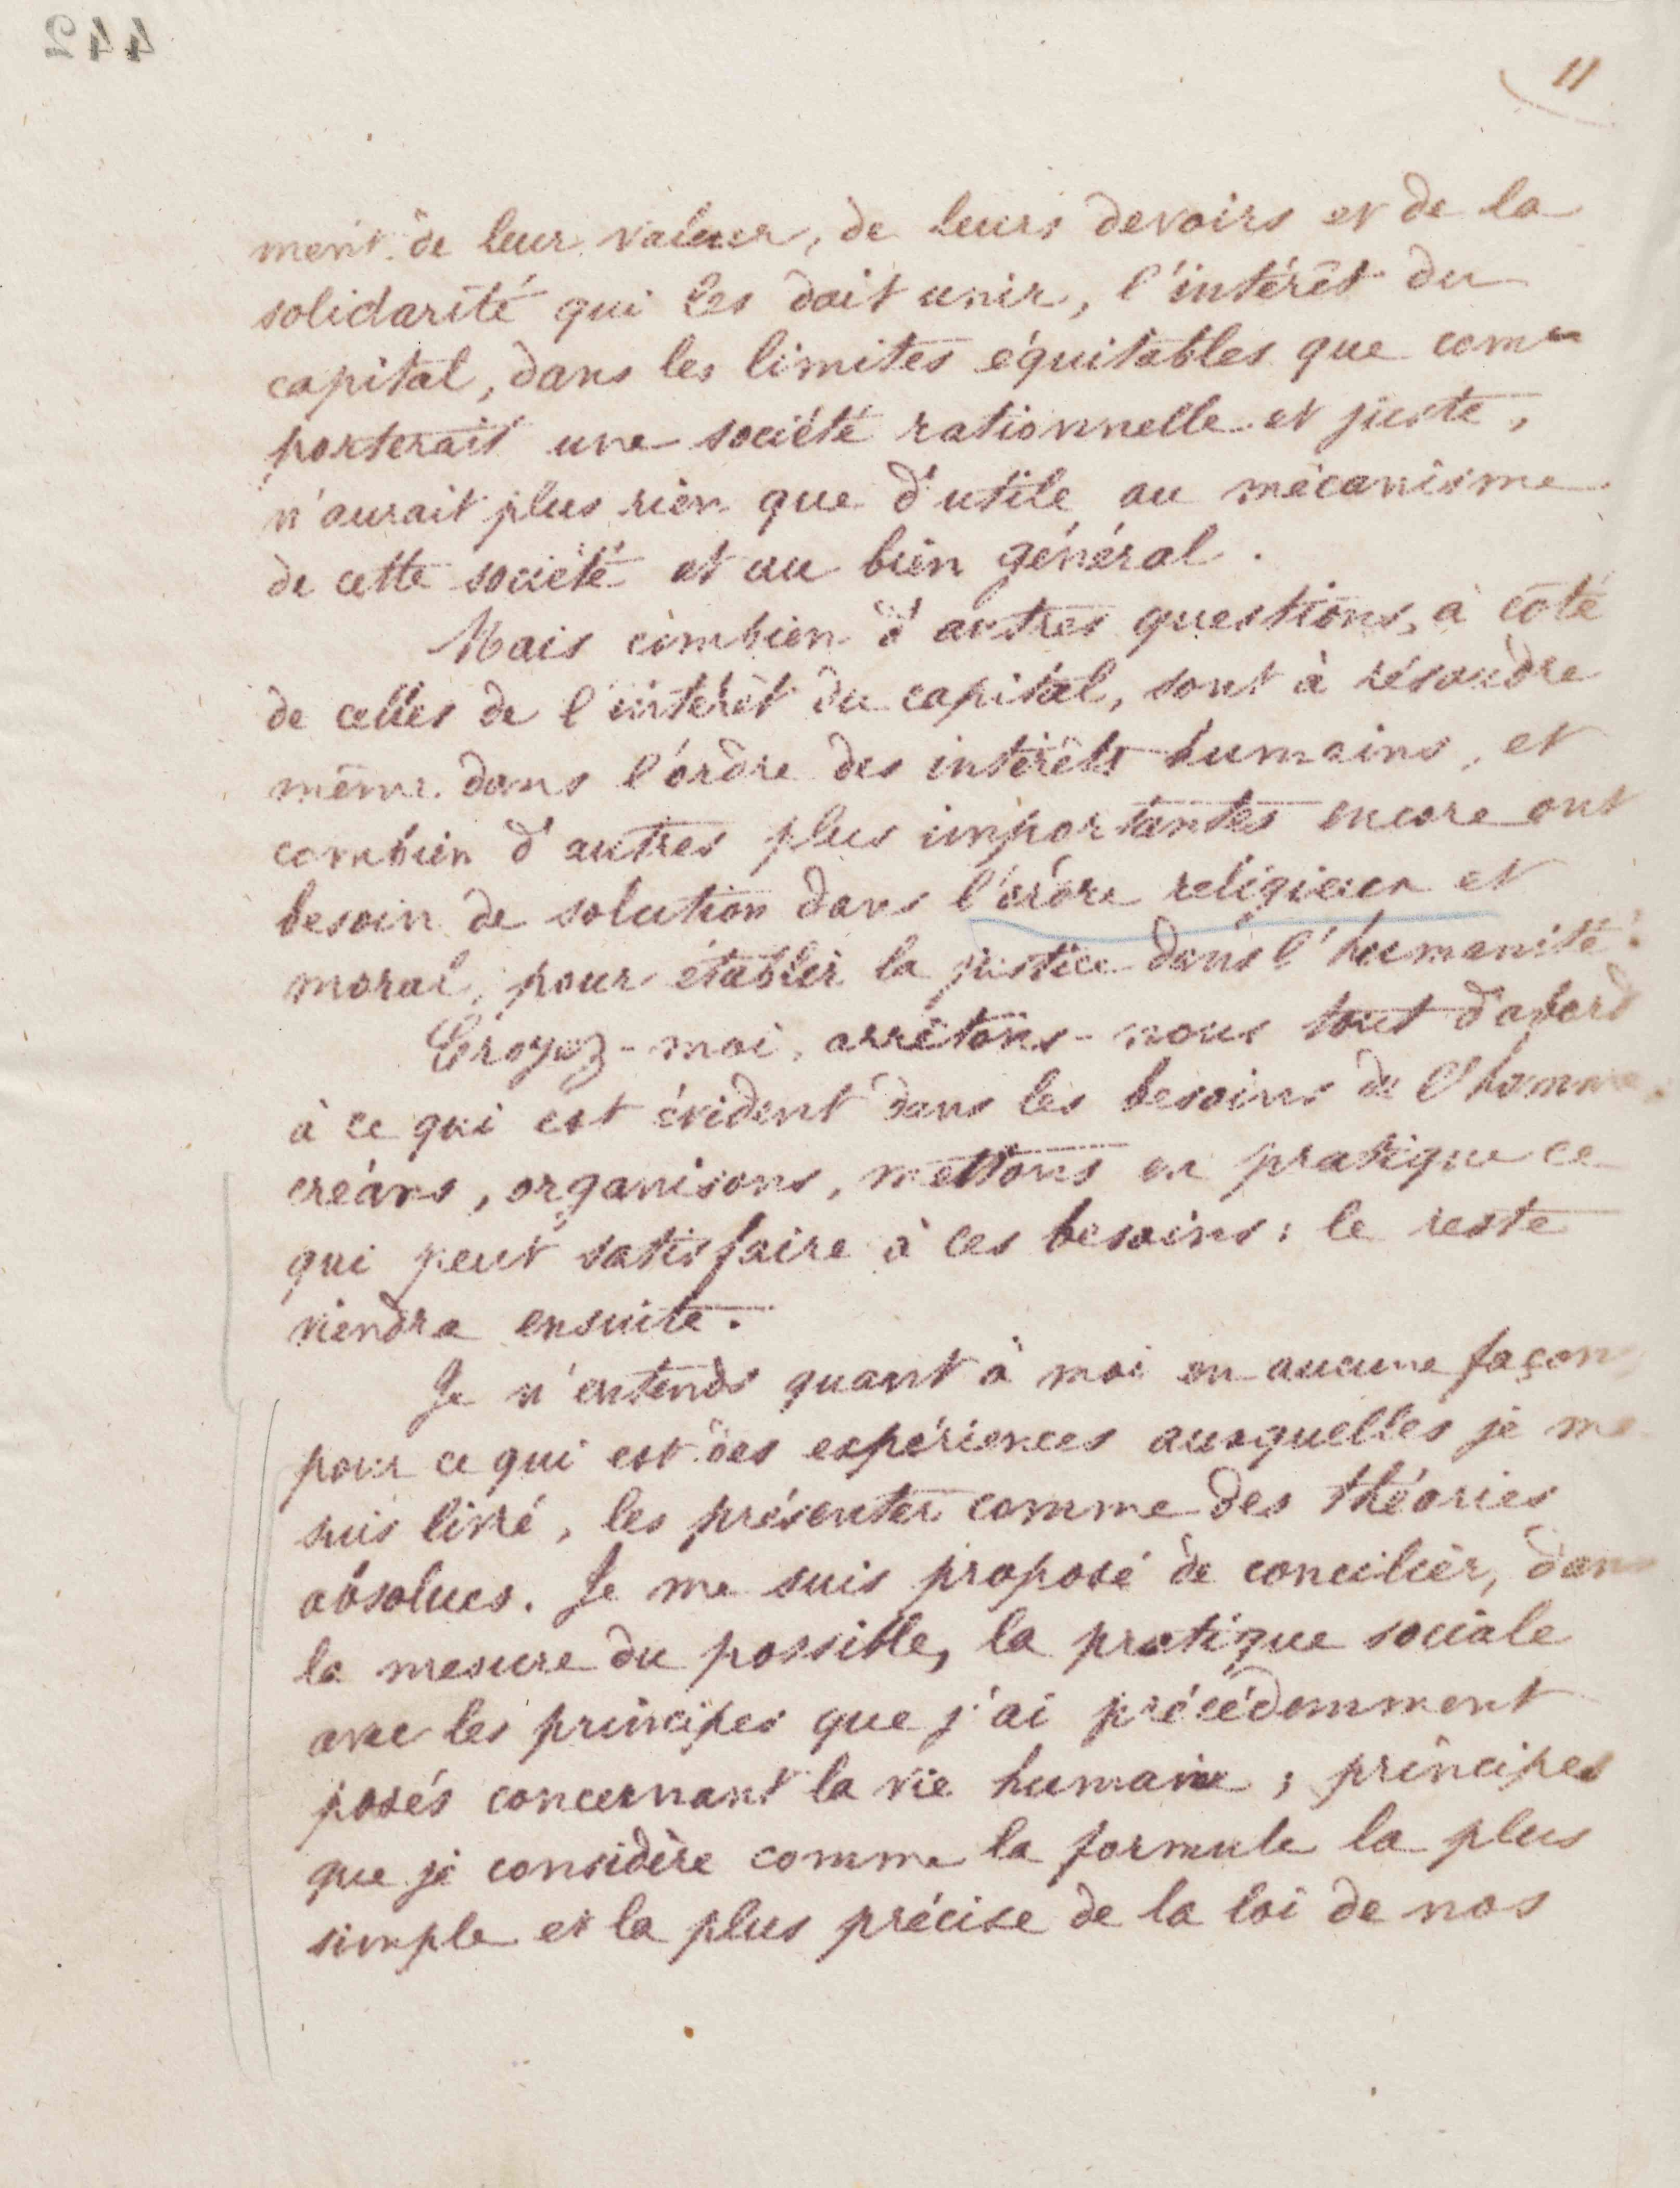 442
11
ment de leur valeur, de leurs devoirs et de la
solidarité qui les doit unir, l'intérêt du
capital, dans les limites équitables que com-
porterait une société rationnelle et juste,
n'aurait plus rien que d'utile au mécanisme
de cette société et au bien général.
Mais combien d'autres questions, à côté
de celles de l'intérêt du capital, sont à résoudre
même dans l'ordre des intérêts humains, et
combien d'autres plus importantes encore ont
besoin de solution dans l'ordre religieux et
moral, pour établir la justice dans l'humanité!
Croyez-moi, arrêtons-nous tout d'abord
à ce qui est évident dans les besoins de l'homme,
créons, organisons, mettons en pratique ce
qui peut satisfaire à ces besoins; le reste
viendra ensuite.
Je n'entends quant à moi en aucune façon
pour ce qui est des expériences auxquelles je me
suis livré, les présenter comme des théories
absolues. Je me suis proposé de concilier, dans
la mesure du possible, la pratique sociale
avec les principes que j'ai précédemment
posés concernant la vie humaine; principes
que je considère comme la formule la plus
simple et la plus précise de la loi de nos